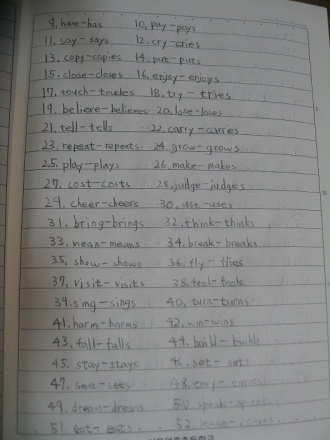 9. have-has 10. pay-pays
11. say-says 12. cry-cries
13. copy-copies 14. put-puts
15. close-closes 16. enjoy-enjoys
17. touch-touches 18. try-tries
19. believe-believes 20. lose-loses
21. tell-tells 22. carry-carries
23. repeat-repeats 24. grow-grows
25. play-plays 26. make-makes
27. cost-costs 28. judge-judges
29. cheer-cheers 30. use-uses
31. bring-brings 32. think-thinks
33. mean-means 34. break-breaks
35. show-shows 36. fly-flies
37. visit-visits 38. feel-feels
39. sing-sings 40. turn-turns
41. harm-harms 42. win-wins
43. fall-falls 44. build-builds
45. stay-stays 46. set-sets
47. see-sees 48.
49. dream-dreams 50. speak-speaks
51. eat-eats 52.